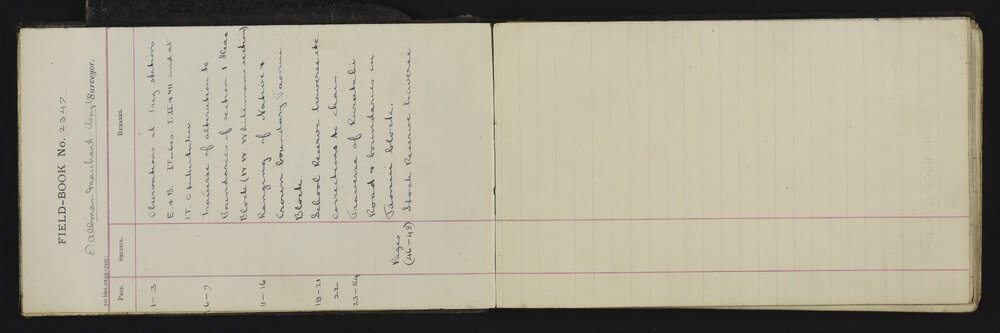 FIELD-BOOK No. 2347
E. Allman Marchant Asst Surveyor.
PAGE. SECTION. REMARKS.
1-3 Observations at Trig stations
E & B. Itubes I II & VII and at
I.T.
6-7 Traverse of alteration to
Boundaries of section 1
Block (W. W. Whitemans section)
11-16 Ranging of Native &
Crown boundary Taonui
Block.
18-21 School Reserve traverse etc.
22 corrections to chain
23-54 Traverse of
Road & boundaries in
Taonui block.
Pages (46-48) Stock Reserve traverse